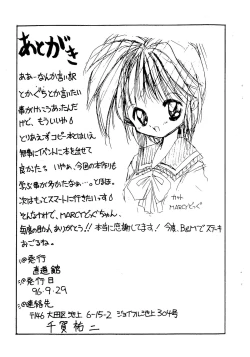 あとがき
ああ…なんか言い訳
とかぐちとか言いたい
事がけっこうあったんだ
けど、もういいや
とりあえずコピー本とはいえ
無事にイベントに本を出せて
良かった。いやぁ、今回の本作りも
学ぶ事が多かったなぁ…。とほほ。
次はもっとスマートに行きたいっす
そんなわけで、MARCYどっぐちゃん、
毎度の助けありがとう!!本当に感謝してます!今度、B&Mでステーキ
おごるね。
カット
MARCYどっぐ
@発行
直道館
@発行日
96.9.29
@連絡先
〒146 大田区池上6-15-2 ジョイフル池上304号
千賀祐二